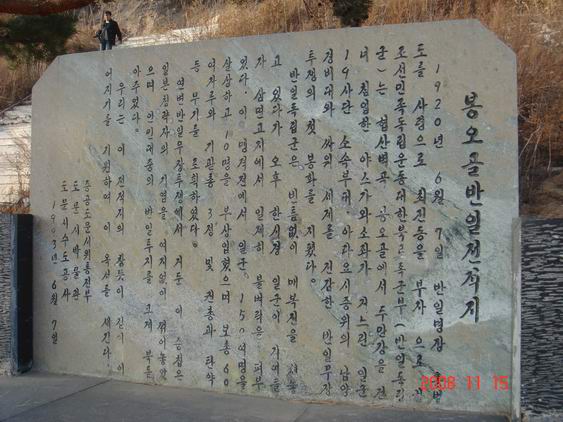 봉오골반일전적지
1920년 6월 7일 반일명장 홍범
도를 사령으로 최진동을 부장으로 한
조선민족독립운동대한북로독군부(반일독립
군)는 험산벽곡 봉오골에서 두만강을 건
너 침입한 야스가와소좌가 거느린 일본
19사단 소속부대 아라요시중위의 남양
경비대와 싸워 세계를 진감한 반일무장
투쟁의 첫 봉화를 지폈다.
반일독립군은 빈틈없이 매복진을 치고
있다가 오후 한시경 일군이 기여들
자 삼면고지에서 일제히 불벼락을 퍼부
었다. 이 명격전에서 일군 150여명을
살상하고 10명을 부상입혔으며 보총 60
여자루와 기관총 3정 및 권총과 탄약
등 무기를 로획하였다.
연변반일무장투쟁에서 거둔 이 승첩은
일본침략자의 기염을 여지없이 꺾어놓았
으며 인민대중의 반일투지를 크게 북돋
아주었다.
우리는 이 전적지의 참뜻이 길이 이
어지기를 기원하여 이 옥석을 세긴다.
중공도문시위통전부
도문시박물관
도문시수도공사
1993년 6월 7일
2008 11 15